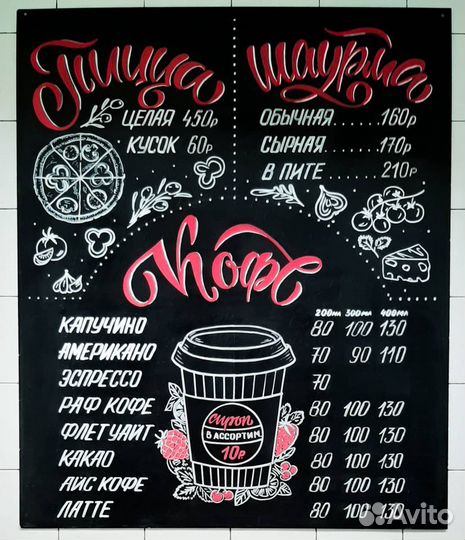 Пицца
ЦЕЛАЯ 450р
КУСОК 60р
Шаурма
ОБЫЧНАЯ.......160р
СЫРНАЯ........170р
В ПИТЕ........210р
Кофе
200мл 300мл 400мл
КАПУЧИНО 80 100 130
АМЕРИКАНО 70 90 110
ЭСПРЕССО 70
РАФ КОФЕ 80 100 130
ФЛЕТ УАЙТ 80 100 130
КАКАО 80 100 130
АЙС КОФЕ 80 100 130
ЛАТТЕ 80 100 130
СИРОП
В АССОРТИМ.
10р.
Avito